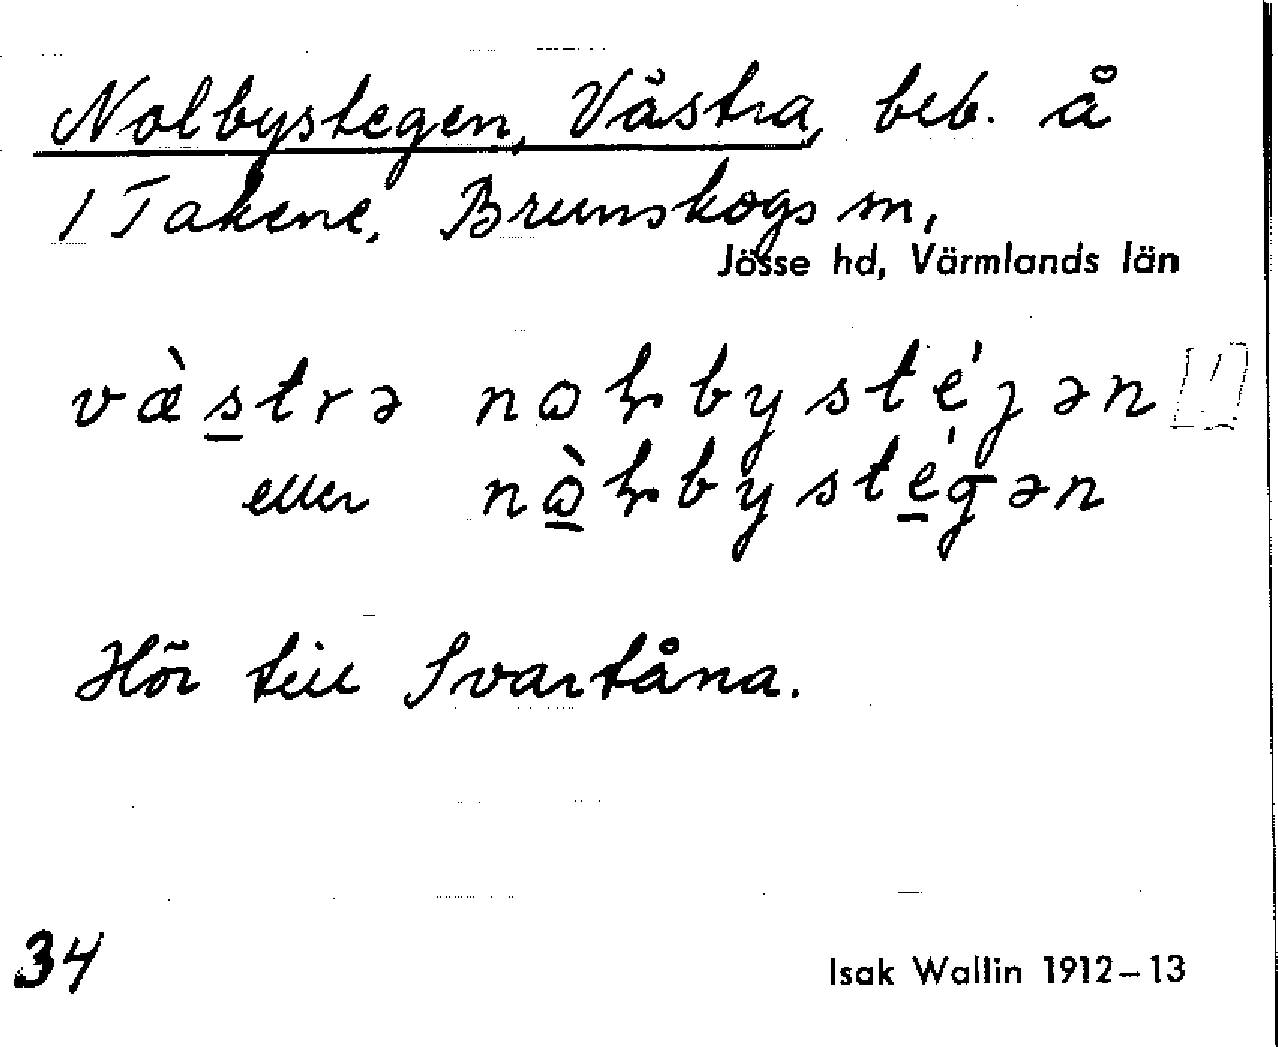 Nolbystegen, Västra, beb. å
1 Takene, Brunskogs sn,
Jösse hd, Värmlands län
væ̀strə noɽbysté'jən
eller nò̱ɽbysté̱'gən
Hör till Svartåna.
34
Isak Wallin 1912–13